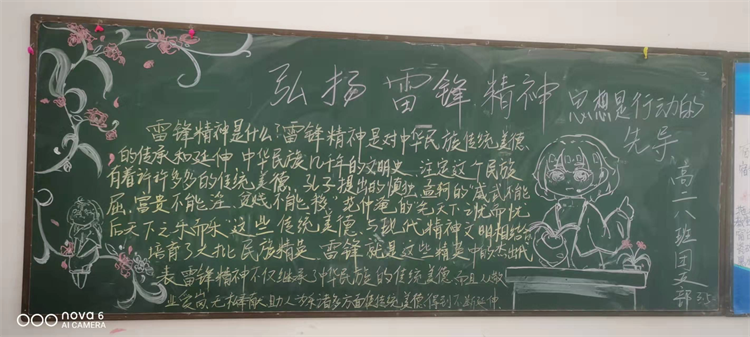 弘扬雷锋精神
思想是行动的
先导
雷锋精神是什么?雷锋精神是对中华民族传统美德
的传承和延伸 中华民族几千年的文明史，注定这个民族
有着许许多多的传统美德，孔子提出的慎独，孟轲的"威武不能
屈，富贵不能淫，贫贱不能移"范仲淹的"先天下之忧而忧
后天下之乐而乐，这些传统美德，与现代精神文明相结合
培育了大批民族精英，雷锋就是这些精英中的杰出代
表 雷锋精神不仅继承了中华民族的传统美德 而且
无私奉献 助人为乐 诸多方面使传统美德得到不断延伸
高一八班团支部
3.5
nova 6
AI CAMERA